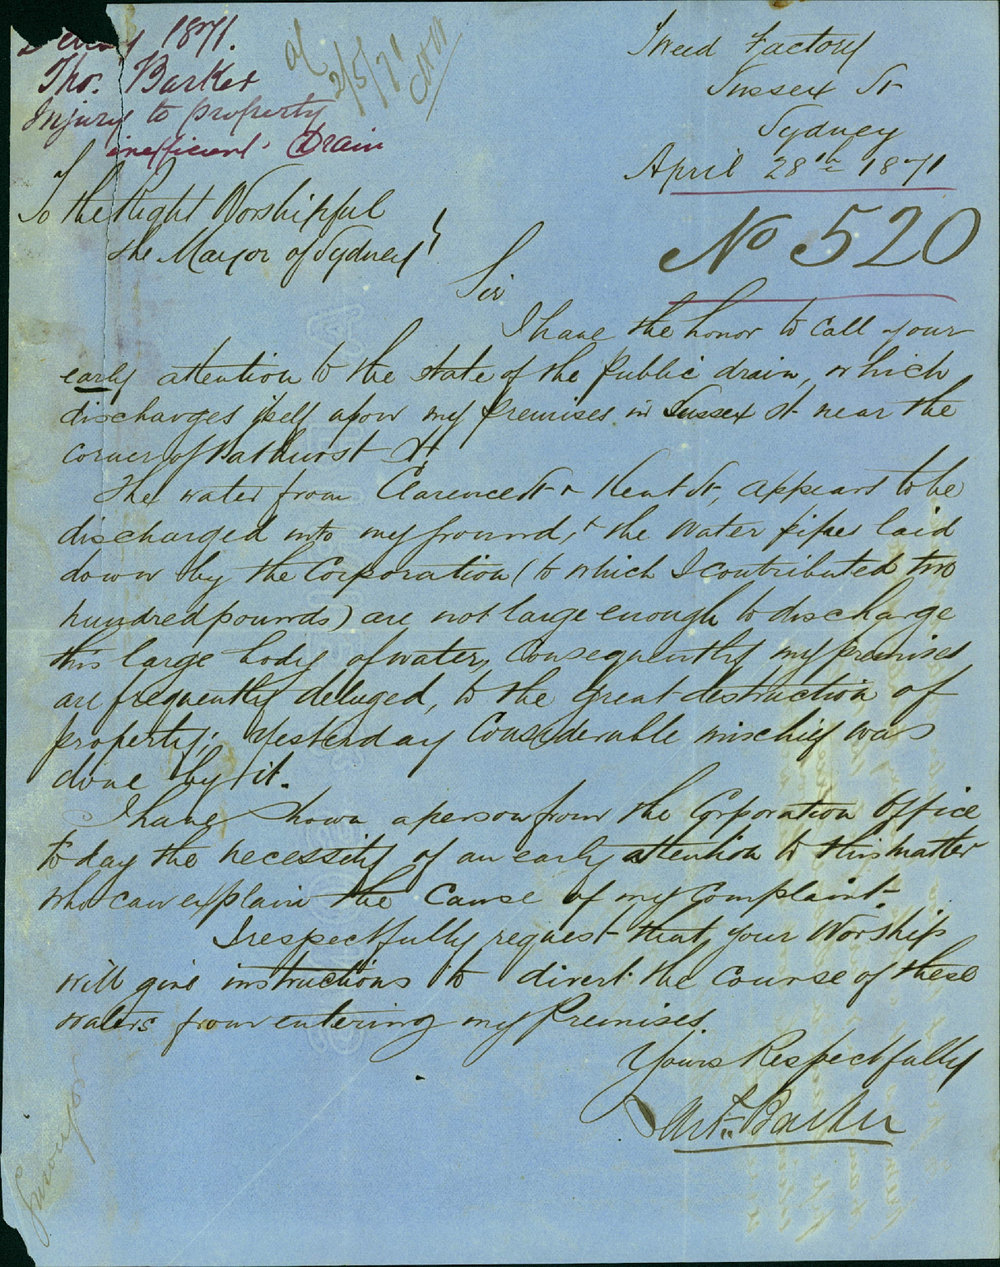 1871.
Tho. Barker
Injury to property
inefficient Drain
2/5/71
Tweed Factory
Sussex St
Sydney
April 28th 1871
No 520
To the Right Worshipful
the Mayor of Sydney
Sir
I have the honor to call your
early attention to the state of the public drain, which
discharges itself upon my premises in Sussex St near the
corner of Bathurst St
The water from Clarence St & Kent St, appears to be
discharged into my ground, & the water pipes laid
down by the Corporation (to which I contributed two
hundred pounds) are not large enough to discharge
this large body of water, Consequently my premises
are frequently deluged, to the great destruction of
property; Yesterday Considerable mischief was
done by it.
I have shown a person from the Corporation Office
to day the necessity of an early attention to this matter
who can explain the Cause of my Complaint.
I respectfully request that your Worship
will give instructions to divert the course of these
waters from entering my Premises.
Yours Respectfully
Barker